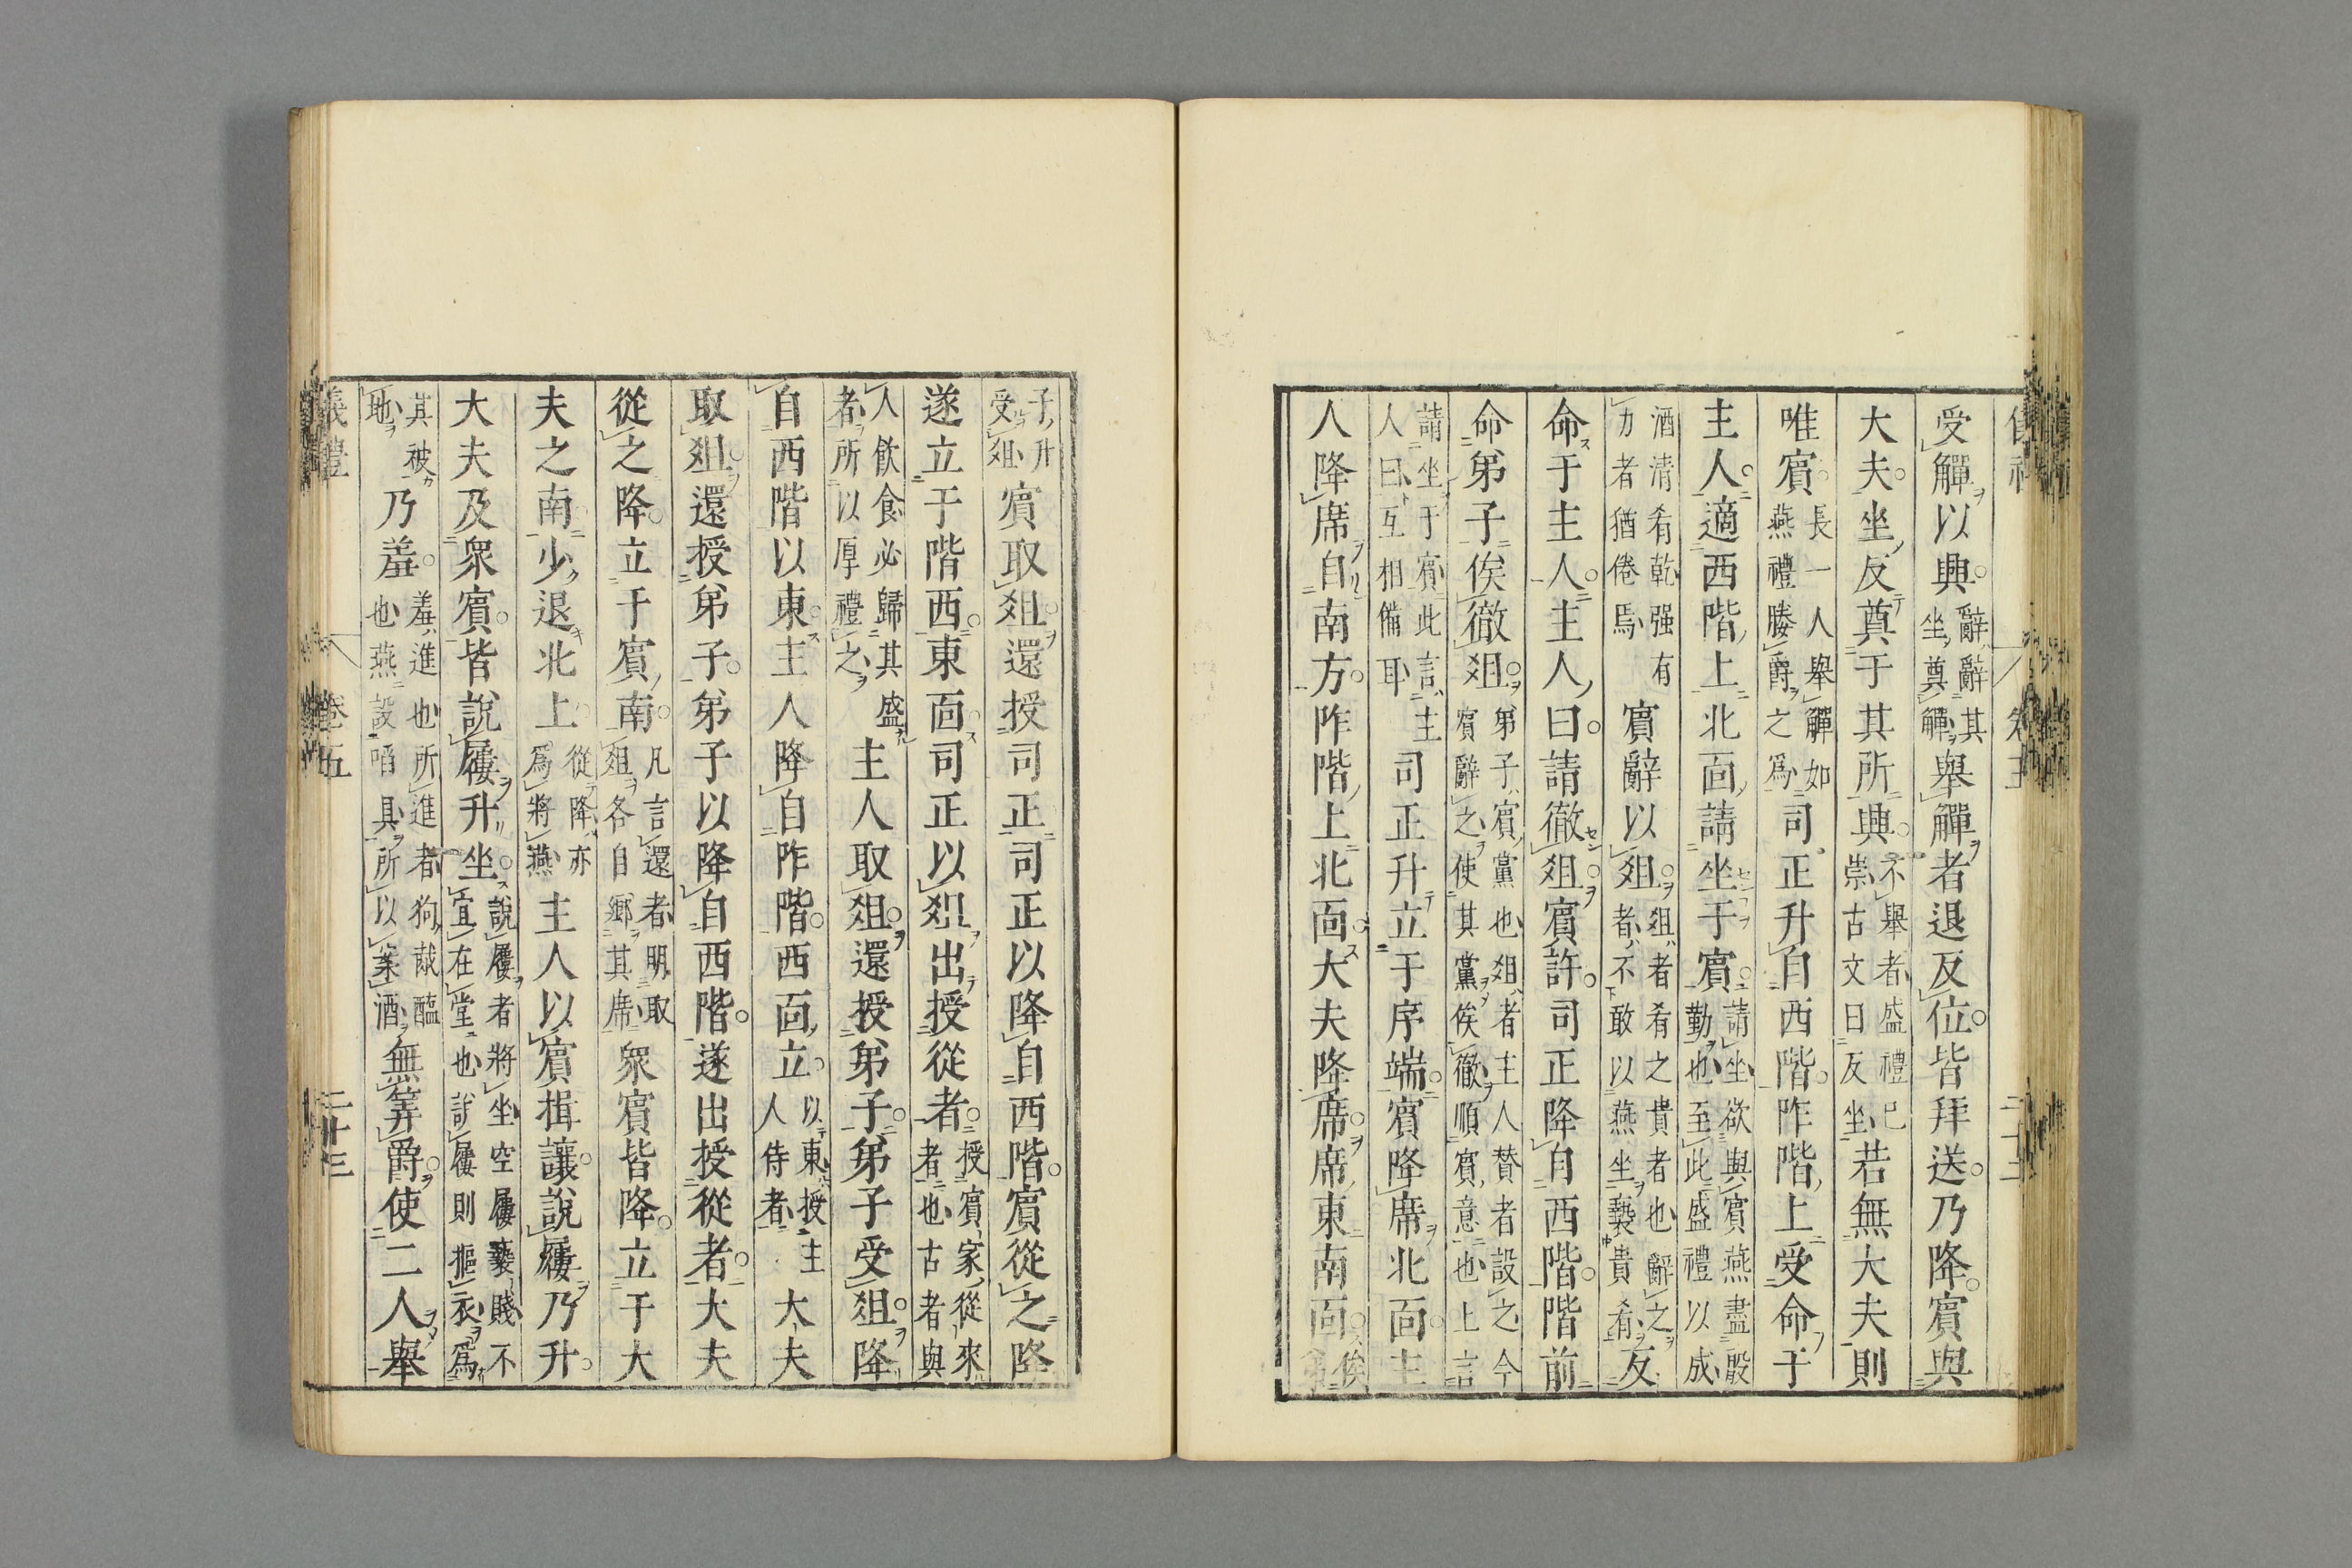 受觶以興辭辭其坐奠觶舉觶者退反位皆拜送乃降賓與
大夫坐反奠于其所興不舉者盛禮已崇古文曰反坐若無大夫則
唯賓長一人舉觶如燕禮媵爵之爲司正升自西階阼階上受命于
主人適西階上北面請坐于賓請坐欲與賓燕盡殷勤也至此盛禮以成
酒清肴乾强有力者猶倦焉賓辭以俎俎者肴之貴者也辭之者不敢以燕坐褻貴肴反
命于主人主人曰請徹俎賓許司正降自西階階前
命弟子俟徹俎弟子賓黨也俎者主人贊者設之今賓辭之使其黨俟徹順賓意也上言
請坐于賓此言主人曰互相備耳司正升立于序端賓降席北面主
人降席自南方阼階上北面大夫降席席東南面俟
子升受俎賓取俎還授司正司正以降自西階賓從之降
遂立于階西東面司正以俎出授從者授賓家從來者也古者與
人飲食必歸其盛者所以厚禮之主人取俎還授弟子弟子受俎降
自西階以東主人降自阼階西面立以東授主人侍者大夫
取俎還授弟子弟子以降自西階遂出授從者大夫
從之降立于賓南凡言還者明取俎各自鄉其席衆賓皆降立于大
夫之南少退北上從降亦爲將燕主人以賓揖讓說屨乃升
大夫及衆賓皆說屨升坐說屨者將坐空屨褻賤不宜在堂也說屨則摳衣爲
其被地乃羞羞進也所進者狗胾醢也燕設啗具所以案酒無筭爵使二人舉
卷五 二十三